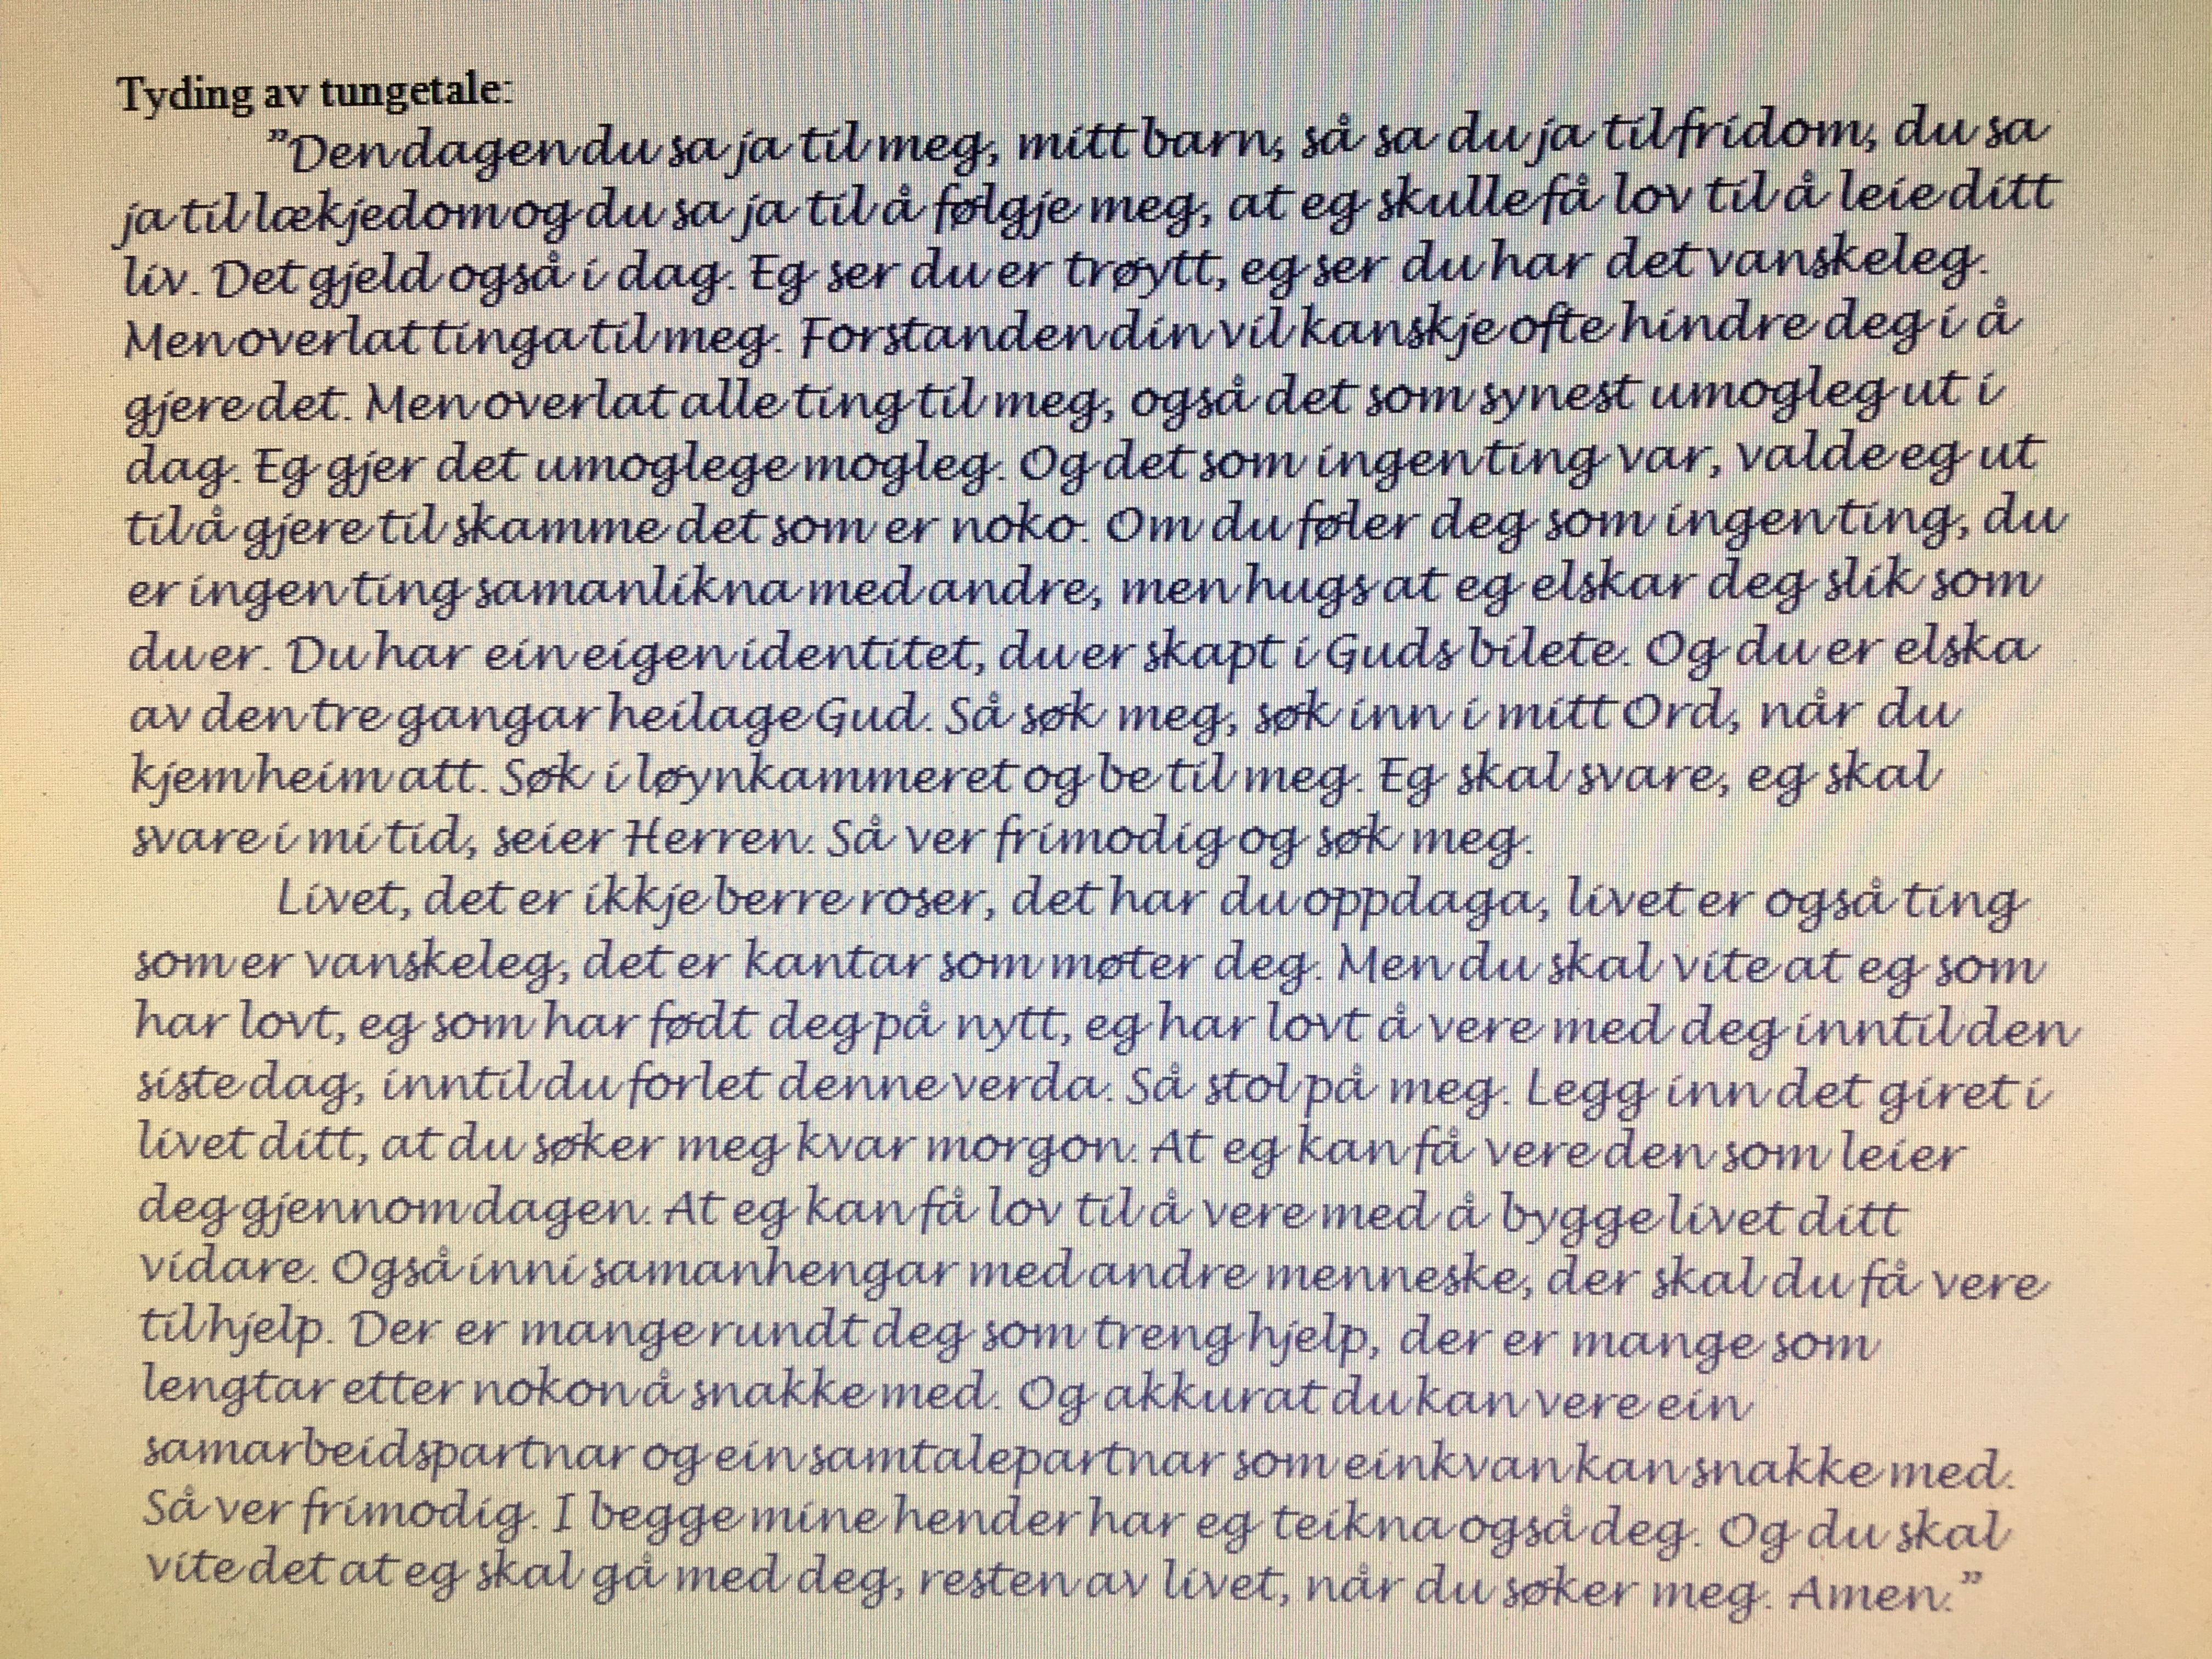 Tyding av tungetale:
”Den dagen du sa ja til meg, mitt barn, så sa du ja til fridom, du sa
ja til lækjedom og du sa ja til å følgje meg, at eg skulle få lov til å leie ditt
liv. Det gjeld også i dag. Eg ser du er trøytt, eg ser du har det vanskeleg.
Men overlat tinga til meg. Forstanden din vil kanskje ofte hindre deg i å
gjere det. Men overlat alle ting til meg, også det som synest umogleg ut i
dag. Eg gjer det umoglege mogleg. Og det som ingenting var, valde eg ut
til å gjere til skamme det som er noko. Om du føler deg som ingenting, du
er ingenting samanlikna med andre, men hugs at eg elskar deg slik som
du er. Du har ein eigen identitet, du er skapt i Guds bilete. Og du er elska
av den tre gangar heilage Gud. Så søk meg, søk inn i mitt Ord, når du
kjem heim att. Søk i løynkammeret og be til meg. Eg skal svare, eg skal
svare i mi tid, seier Herren. Så ver frimodig og søk meg.
Livet, det er ikkje berre roser, det har du oppdaga, livet er også ting
som er vanskeleg, det er kantar som møter deg. Men du skal vite at eg som
har lovt, eg som har født deg på nytt, eg har lovt å vere med deg inntil den
siste dag, inntil du forlet denne verda. Så stol på meg. Legg inn det giret i
livet ditt, at du søker meg kvar morgon. At eg kan få vere den som leier
deg gjennom dagen. At eg kan få lov til å vere med å bygge livet ditt
vidare. Også inni samanhengar med andre menneske, der skal du få vere
til hjelp. Der er mange rundt deg som treng hjelp, der er mange som
lengtar etter nokon å snakke med. Og akkurat du kan vere ein
samarbeidspartnar og ein samtalepartnar som einkvan kan snakke med.
Så ver frimodig. I begge mine hender har eg teikna også deg. Og du skal
vite det at eg skal gå med deg, resten av livet, når du søker meg. Amen.”